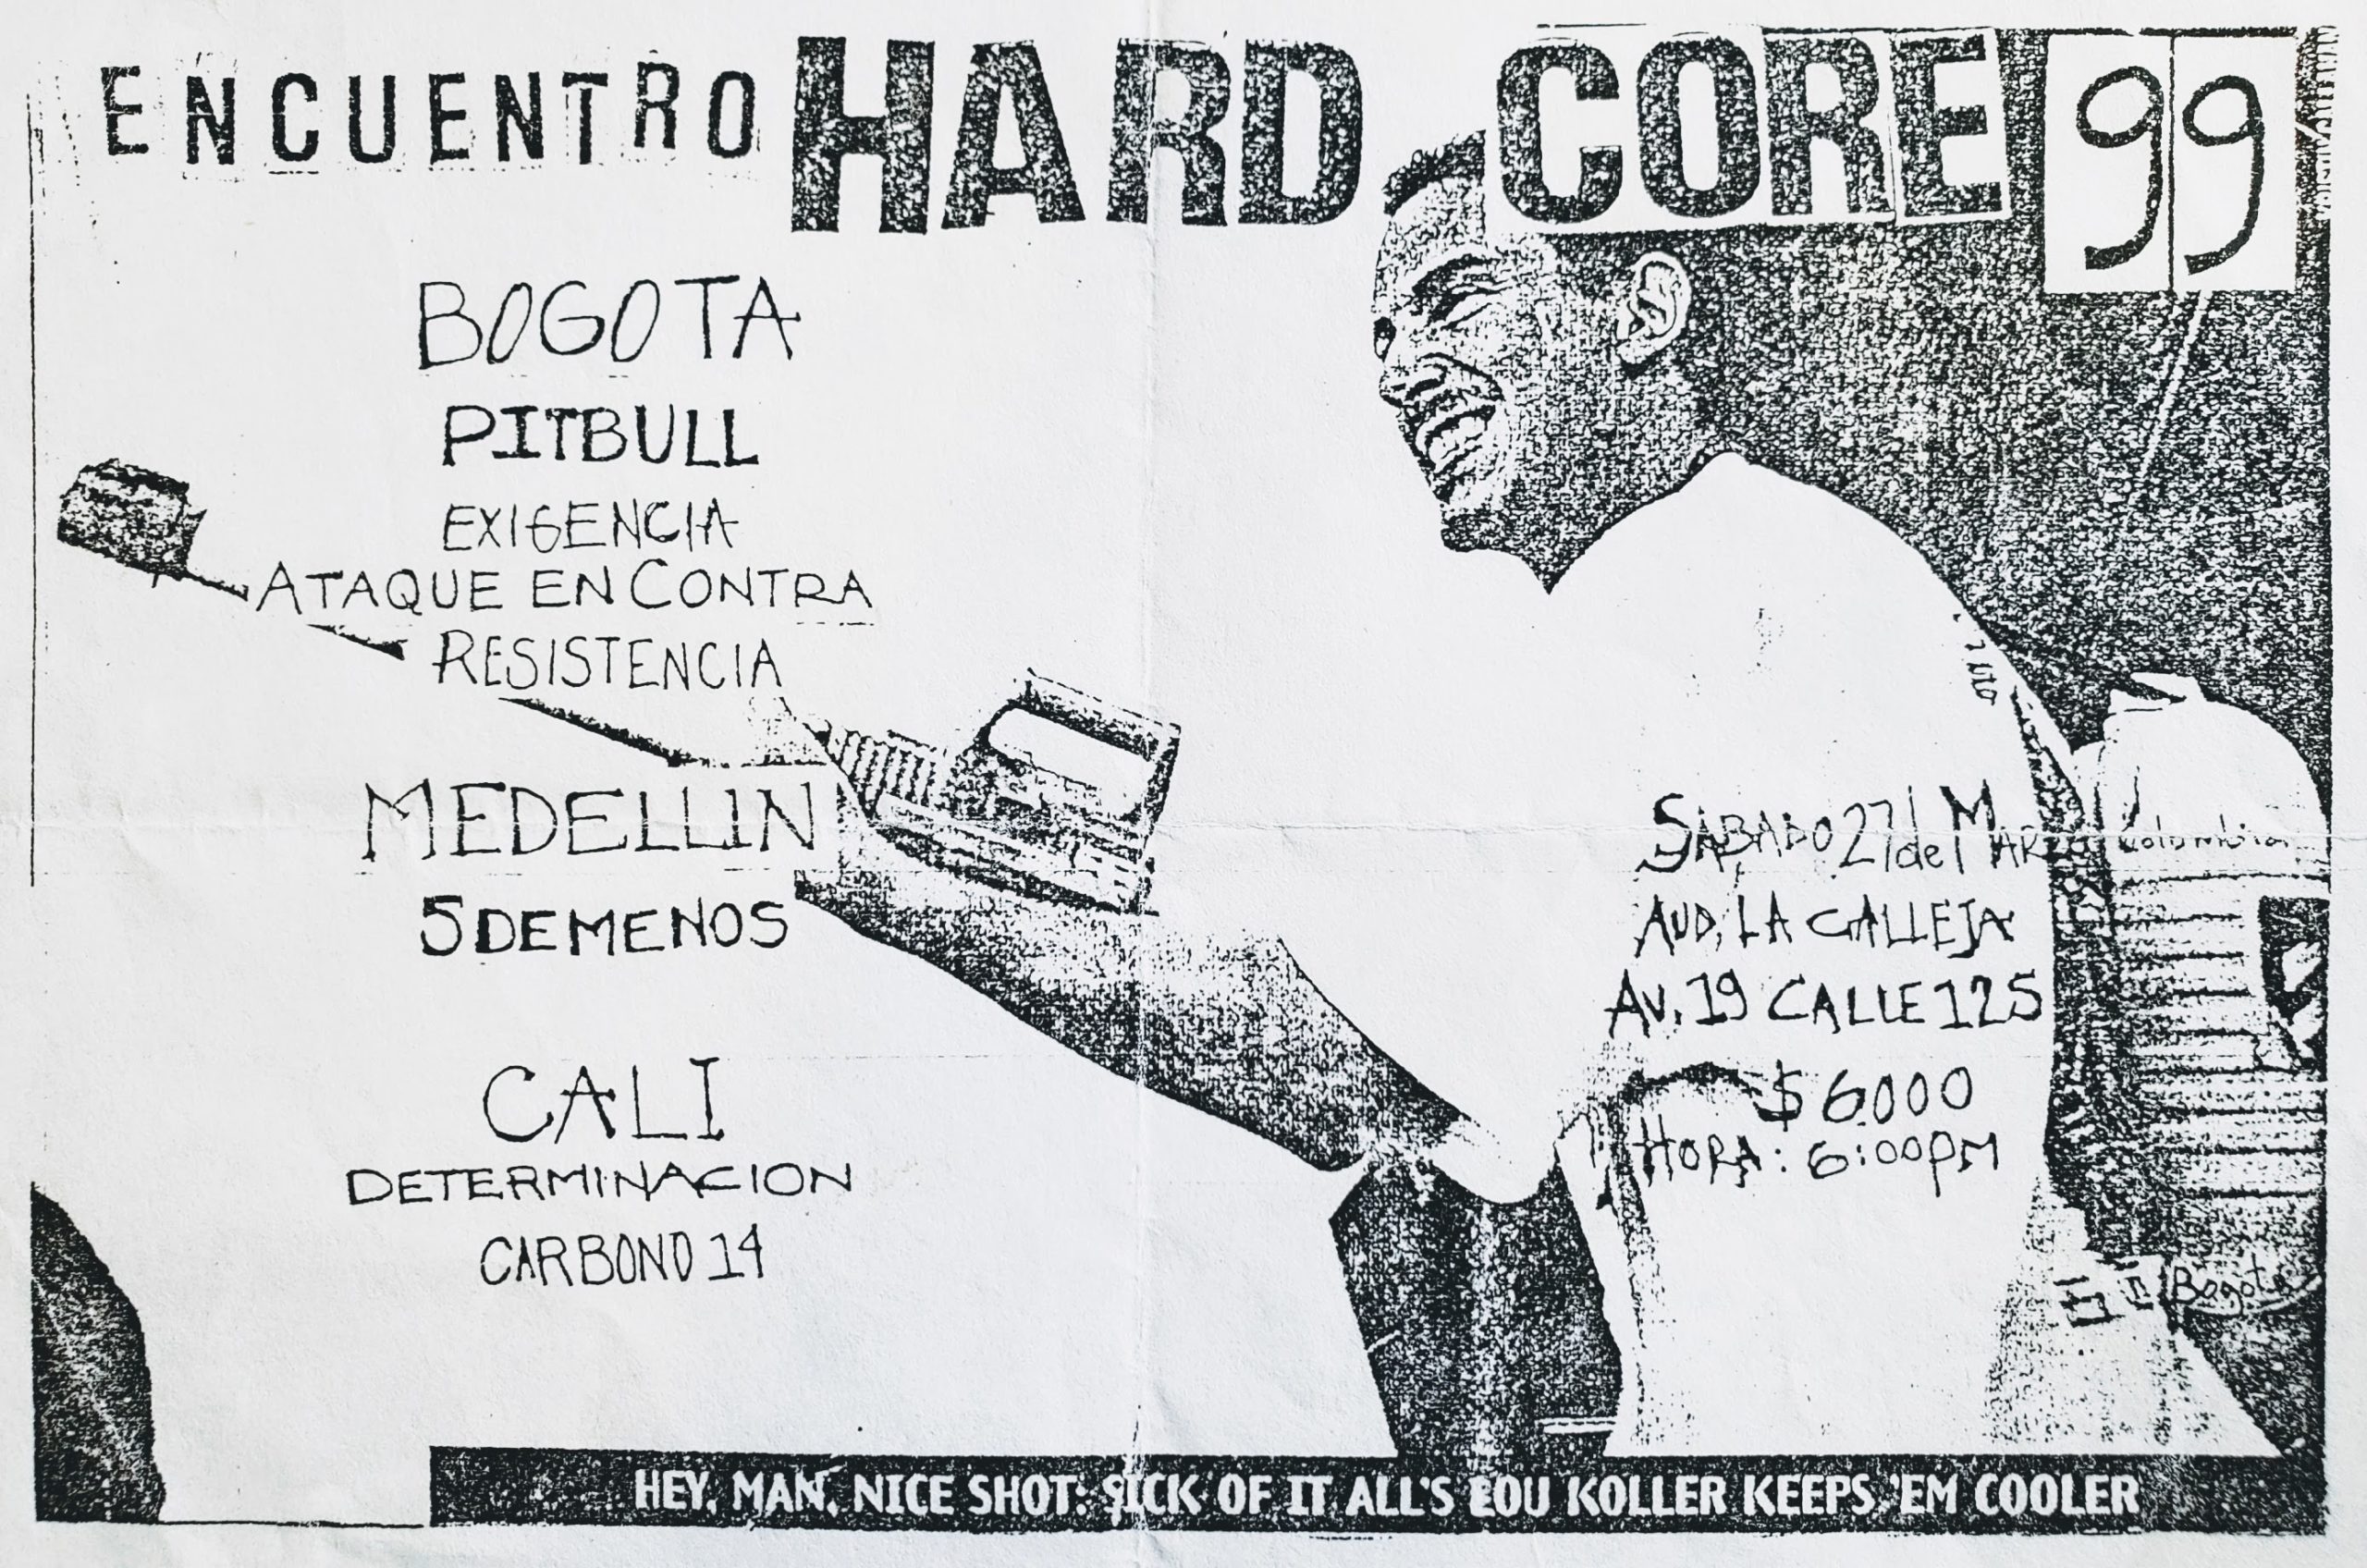 ENCUENTRO HARD CORE 99
BOGOTA
PITBULL
EXIGENCIA
ATAQUE EN CONTRA
RESISTENCIA
MEDELLIN
5 DE MENOS
CALI
DETERMINACION
CARBONO 14
SABADO 27 de MARZO
AUD. LA CALLEJA
AV. 19 CALLE 125
$6000
HORA: 6:00PM
Colombia
Bogota
HEY, MAN, NICE SHOT: SICK OF IT ALL'S LOU KOLLER KEEPS 'EM COOLER